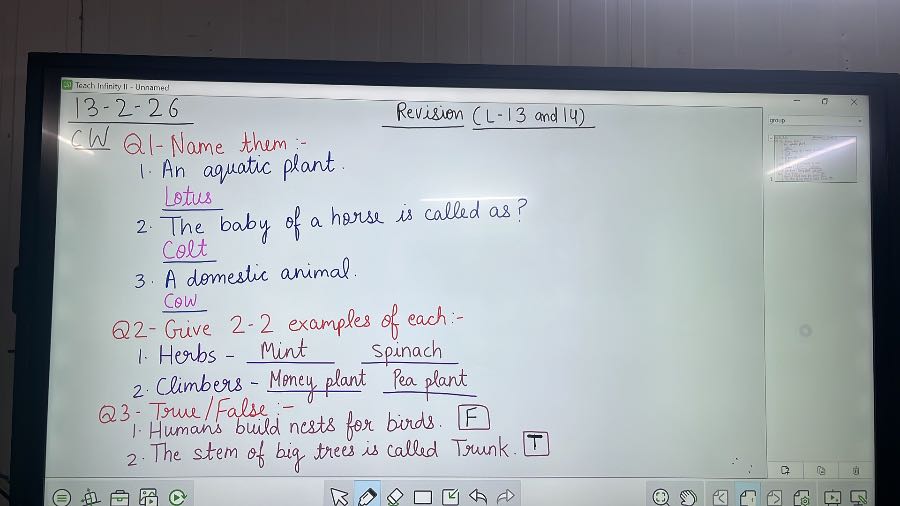 Teach Infinity II - Unnamed
13-2-26
Revision (L-13 and 14)
group
CW
Q1- Name them :-
1. An aquatic plant.
Lotus
2. The baby of a horse is called as?
Colt
3. A domestic animal.
Cow
Q2- Give 2-2 examples of each:-
1. Herbs - Mint Spinach
2. Climbers - Money plant Pea plant
Q3- True/False :-
1. Humans build nests for birds. F
2. The stem of big trees is called Trunk. T